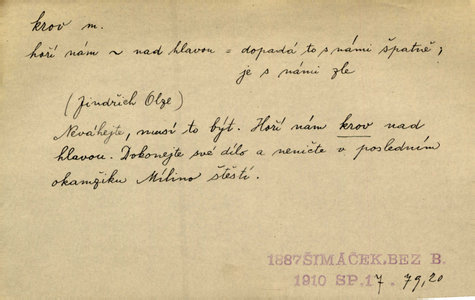 krov m.
hoří nám ~ nad hlavou = dopadá to s námi špatně;
je s námi zle
(Jindřich Olze)
Neváhejte, musí to být. Hoří nám krov nad
hlavou. Dokonejte své dílo a neničte v posledním
okamžiku Mílino štěstí.
1887ŠIMÁČEK,BEZ B.
1910 SP.17. 79,20